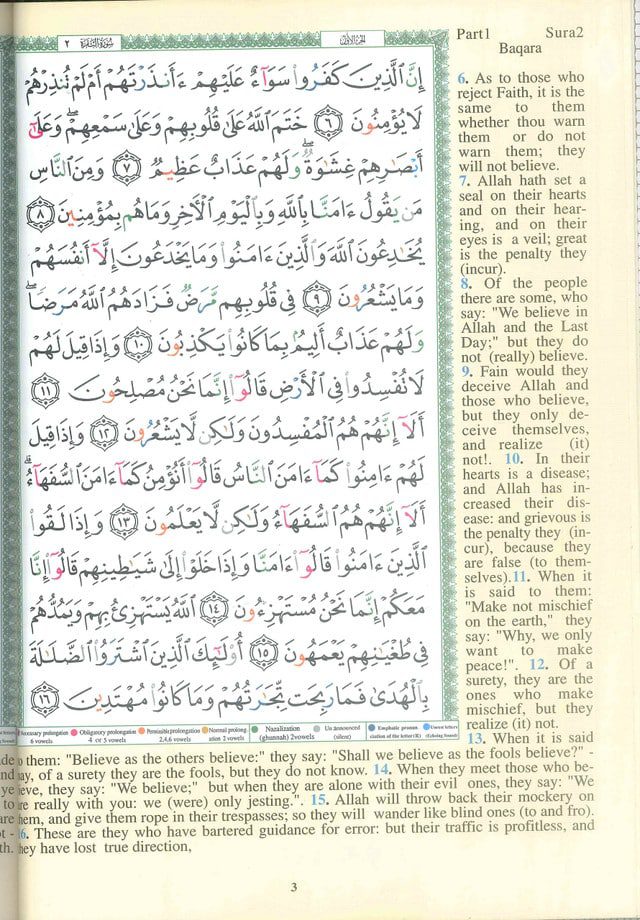 سُورَةُ البَقَرَةِ ٢
الجُزْءُ الأَوَّلُ
إِنَّ ٱلَّذِينَ كَفَرُوا۟ سَوَآءٌ عَلَيْهِمْ ءَأَنذَرْتَهُمْ أَمْ لَمْ تُنذِرْهُمْ
لَا يُؤْمِنُونَ ﴿٦﴾ خَتَمَ ٱللَّهُ عَلَىٰ قُلُوبِهِمْ وَعَلَىٰ سَمْعِهِمْ ۖ وَعَلَىٰٓ
أَبْصَٰرِهِمْ غِشَٰوَةٌ ۖ وَلَهُمْ عَذَابٌ عَظِيمٌ ﴿٧﴾ وَمِنَ ٱلنَّاسِ
مَن يَقُولُ ءَامَنَّا بِٱللَّهِ وَبِٱلْيَوْمِ ٱلْءَاخِرِ وَمَا هُم بِمُؤْمِنِينَ ﴿٨﴾
يُخَٰدِعُونَ ٱللَّهَ وَٱلَّذِينَ ءَامَنُوا۟ وَمَا يَخْدَعُونَ إِلَّآ أَنفُسَهُمْ
وَمَا يَشْعُرُونَ ﴿٩﴾ فِى قُلُوبِهِم مَّرَضٌ فَزَادَهُمُ ٱللَّهُ مَرَضًا ۖ
وَلَهُمْ عَذَابٌ أَلِيمٌۢ بِمَا كَانُوا۟ يَكْذِبُونَ ﴿١٠﴾ وَإِذَا قِيلَ لَهُمْ
لَا تُفْسِدُوا۟ فِى ٱلْأَرْضِ قَالُوٓا۟ إِنَّمَا نَحْنُ مُصْلِحُونَ ﴿١١﴾
أَلَآ إِنَّهُمْ هُمُ ٱلْمُفْسِدُونَ وَلَٰكِن لَّا يَشْعُرُونَ ﴿١٢﴾ وَإِذَا قِيلَ
لَهُمْ ءَامِنُوا۟ كَمَآ ءَامَنَ ٱلنَّاسُ قَالُوٓا۟ أَنُؤْمِنُ كَمَآ ءَامَنَ ٱلسُّفَهَآءُ ۗ
أَلَآ إِنَّهُمْ هُمُ ٱلسُّفَهَآءُ وَلَٰكِن لَّا يَعْلَمُونَ ﴿١٣﴾ وَإِذَا لَقُوا۟
ٱلَّذِينَ ءَامَنُوا۟ قَالُوٓا۟ ءَامَنَّا وَإِذَا خَلَوْا۟ إِلَىٰ شَيَٰطِينِهِمْ قَالُوٓا۟ إِنَّا
مَعَكُمْ إِنَّمَا نَحْنُ مُسْتَهْزِءُونَ ﴿١٤﴾ ٱللَّهُ يَسْتَهْزِئُ بِهِمْ وَيَمُدُّهُمْ
فِى طُغْيَٰنِهِمْ يَعْمَهُونَ ﴿١٥﴾ أُو۟لَٰٓئِكَ ٱلَّذِينَ ٱشْتَرَوُا۟ ٱلضَّلَٰلَةَ
بِٱلْهُدَىٰ فَمَا رَبِحَت تِّجَٰرَتُهُمْ وَمَا كَانُوا۟ مُهْتَدِينَ ﴿١٦﴾
Part1 Sura2
Baqara
6. As to those who
reject Faith, it is the
same to them
whether thou warn
them or do not
warn them; they
will not believe.
7. Allah hath set a
seal on their hearts
and on their hear-
ing, and on their
eyes is a veil; great
is the penalty they
(incur).
8. Of the people
there are some, who
say: "We believe in
Allah and the Last
Day;" but they do
not (really) believe.
9. Fain would they
deceive Allah and
those who believe,
but they only de-
ceive themselves,
and realize (it)
not!. 10. In their
hearts is a disease;
and Allah has in-
creased their dis-
ease: and grievous is
the penalty they (in-
cur), because they
are false (to them-
selves).11. When it
is said to them:
"Make not mischief
on the earth," they
say: "Why, we only
want to make
peace!". 12. Of a
surety, they are the
ones who make
mischief, but they
realize (it) not.
13. When it is said
necessary prolongation Obligatory prolongation Permissible prolongation Normal prolong- Nazalization Un announced Emphatic pronun- Unrest letters
6 vowels 4 or 5 vowels 2,4,6 vowels ation 2 vowels (ghunnah) 2vowels (silent) ciation of the letter (R) (Echoing Sound)
o them: "Believe as the others believe:" they say: "Shall we believe as the fools believe?" -
ay, of a surety they are the fools, but they do not know. 14. When they meet those who be-
eve, they say: "We believe;" but when they are alone with their evil ones, they say: "We
re really with you: we (were) only jesting.". 15. Allah will throw back their mockery on
hem, and give them rope in their trespasses; so they will wander like blind ones (to and fro).
6. These are they who have bartered guidance for error: but their traffic is profitless, and
hey have lost true direction,
3